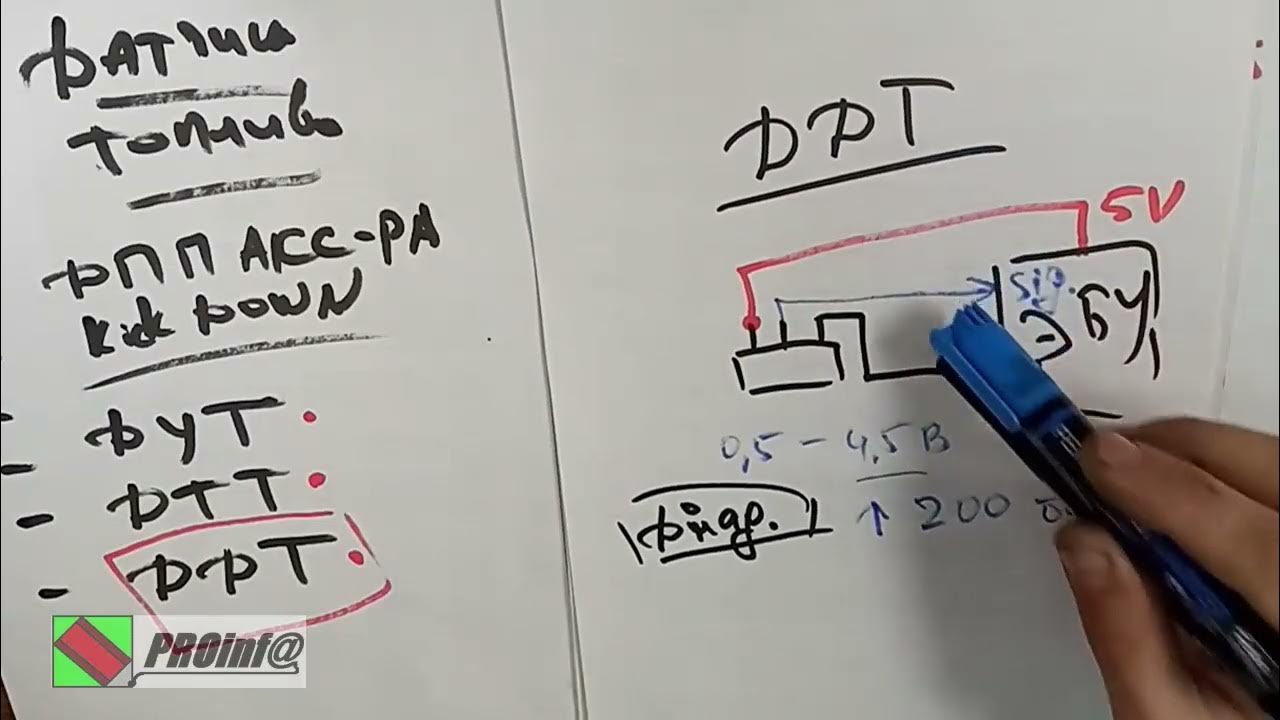 ДАТЧИКИ
ТОПЛИВА
ДПП АКС-РА
Kick DOWN
- ДУТ
- ДТТ
- ДДТ
PROinf@
ДДТ
5V
Sig.
ЭБУ
0,5 - 4,5 В
Диар.
↑ 200